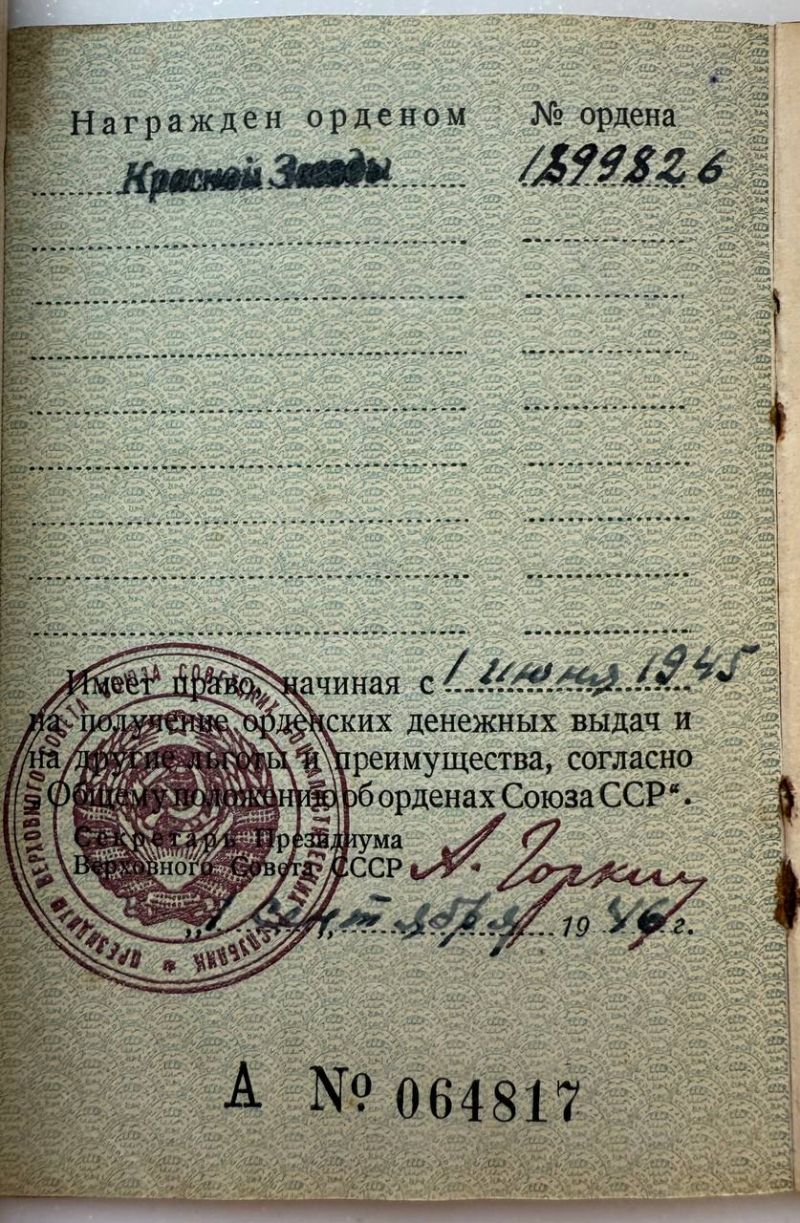 Награжден орденом № ордена
Красной Звезды 1899826
Имеет право, начиная с 1 июня 1945
на получение орденских денежных выдач и
на другие льготы и преимущества, согласно
„Общему положению об орденах Союза ССР“.
Секретарь Президиума
Верховного Совета СССР А. Горкин
„1 сентября 1946 г.
ПРЕЗИДИУМ ВЕРХОВНОГО СОВЕТА СОЮЗА СОВЕТСКИХ СОЦИАЛИСТИЧЕСКИХ РЕСПУБЛИК
А № 064817